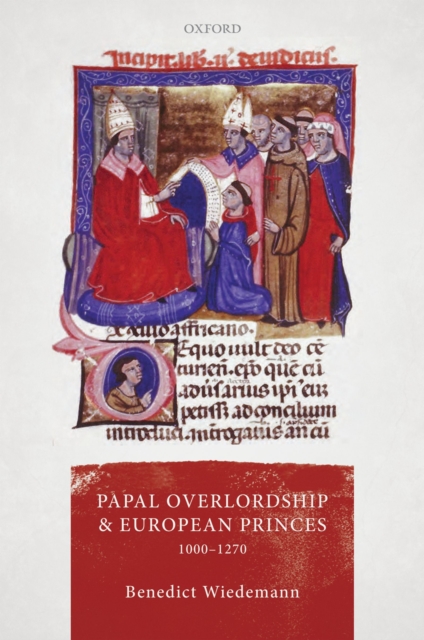 OXFORD
Incipit lib. ii. de iudiciis.
Ex xilio affricano.
Equo uult deo ce
turien. epo quē cū
aduersarius ipi eius
petiss; ad concilium
introduci. Interrogatus an cū
PAPAL OVERLORDSHIP
& EUROPEAN PRINCES
1000–1270
Benedict Wiedemann